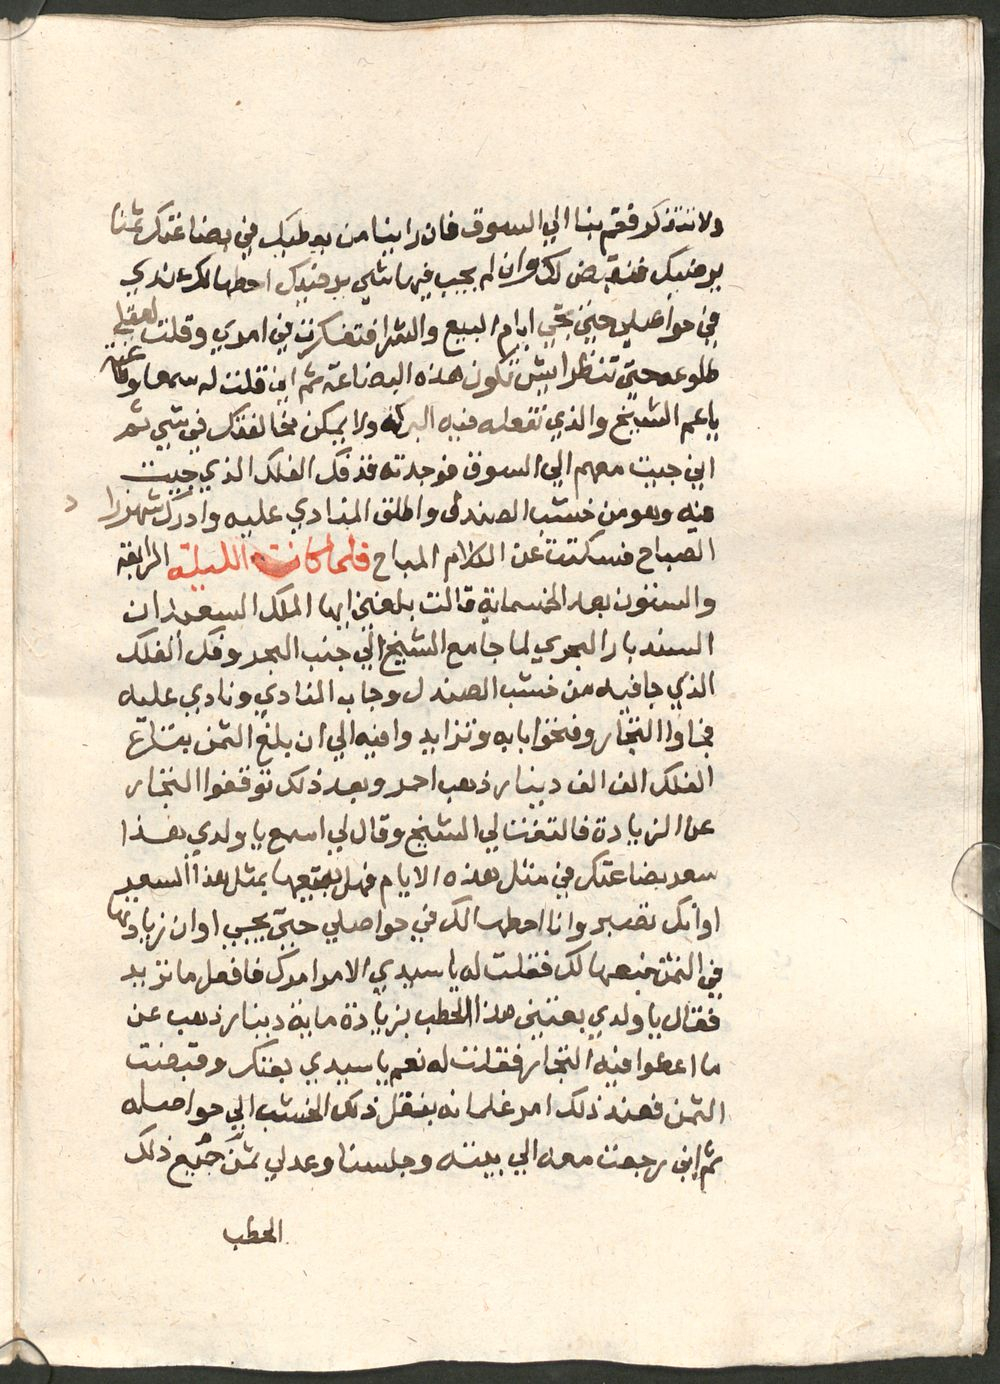 ولا تتذكر فقم بنا الي السوق فان راينا من يعطيك في بضاعتك ثمنا
يرضيك فنقبض لك وان لم يجيب فيها شي يرضيك احطها لك عندي
في حواصلي حتي تجي ايام البيع والشرا فتفكرت في امري وقلت لعقلي
طلوعه حتي تنظر ايش تكون هذه البضاعة ثم اني قلت له سمعا وطاعة
يا عم الشيخ والذي تفعله فيه البركة ولا يمكن مخالفتك في شي ثم
اني جيت معهم الي السوق فوجدته قد فك الفلك الذي جيت
فيه وهو من خشب الصندل واطلق المنادي عليه وادرك شهرزاد
الصباح فسكتت عن الكلام المباح فلما كانت الليلة الرابعة
والستون بعد الخمسماية قالت بلغني ايها الملك السعيد ان
السندباد البحري لما جا مع الشيخ الي جنب البحر وفك الفلك
الذي جا فيه من خشب الصندل وجاب المنادي ونادي عليه
فجاوا التجار وفتحوا بابه وتزايدوا فيه الي ان بلغ الثمن بتاع
الفلك الف الف دينار ذهب احمر وبعد ذلك توقفوا التجار
عن الزيادة فالتفت لي الشيخ وقال لي اسمع يا ولدي هذا
سعر بضاعتك في مثل هذه الايام فهل تبيعها بمثل هذا السعر
او انك تصبر وانا احطها لك في حواصلي حتي يجي اوان زيادتها
في الثمن فنبيعها لك فقلت له يا سيدي الامر امرك فافعل ما تريد
فقال يا ولدي بعتني هذا الحطب بزيادة ماية دينار ذهب عن
ما اعطوا فيه التجار فقلت له نعم يا سيدي بعتك وقبضت
الثمن فعند ذلك امر غلمانه بنقل ذلك الخشب الي حواصله
ثم اني رجعت معه الي بيته وجلسنا وعد لي ثمن جميع ذلك
الحطب